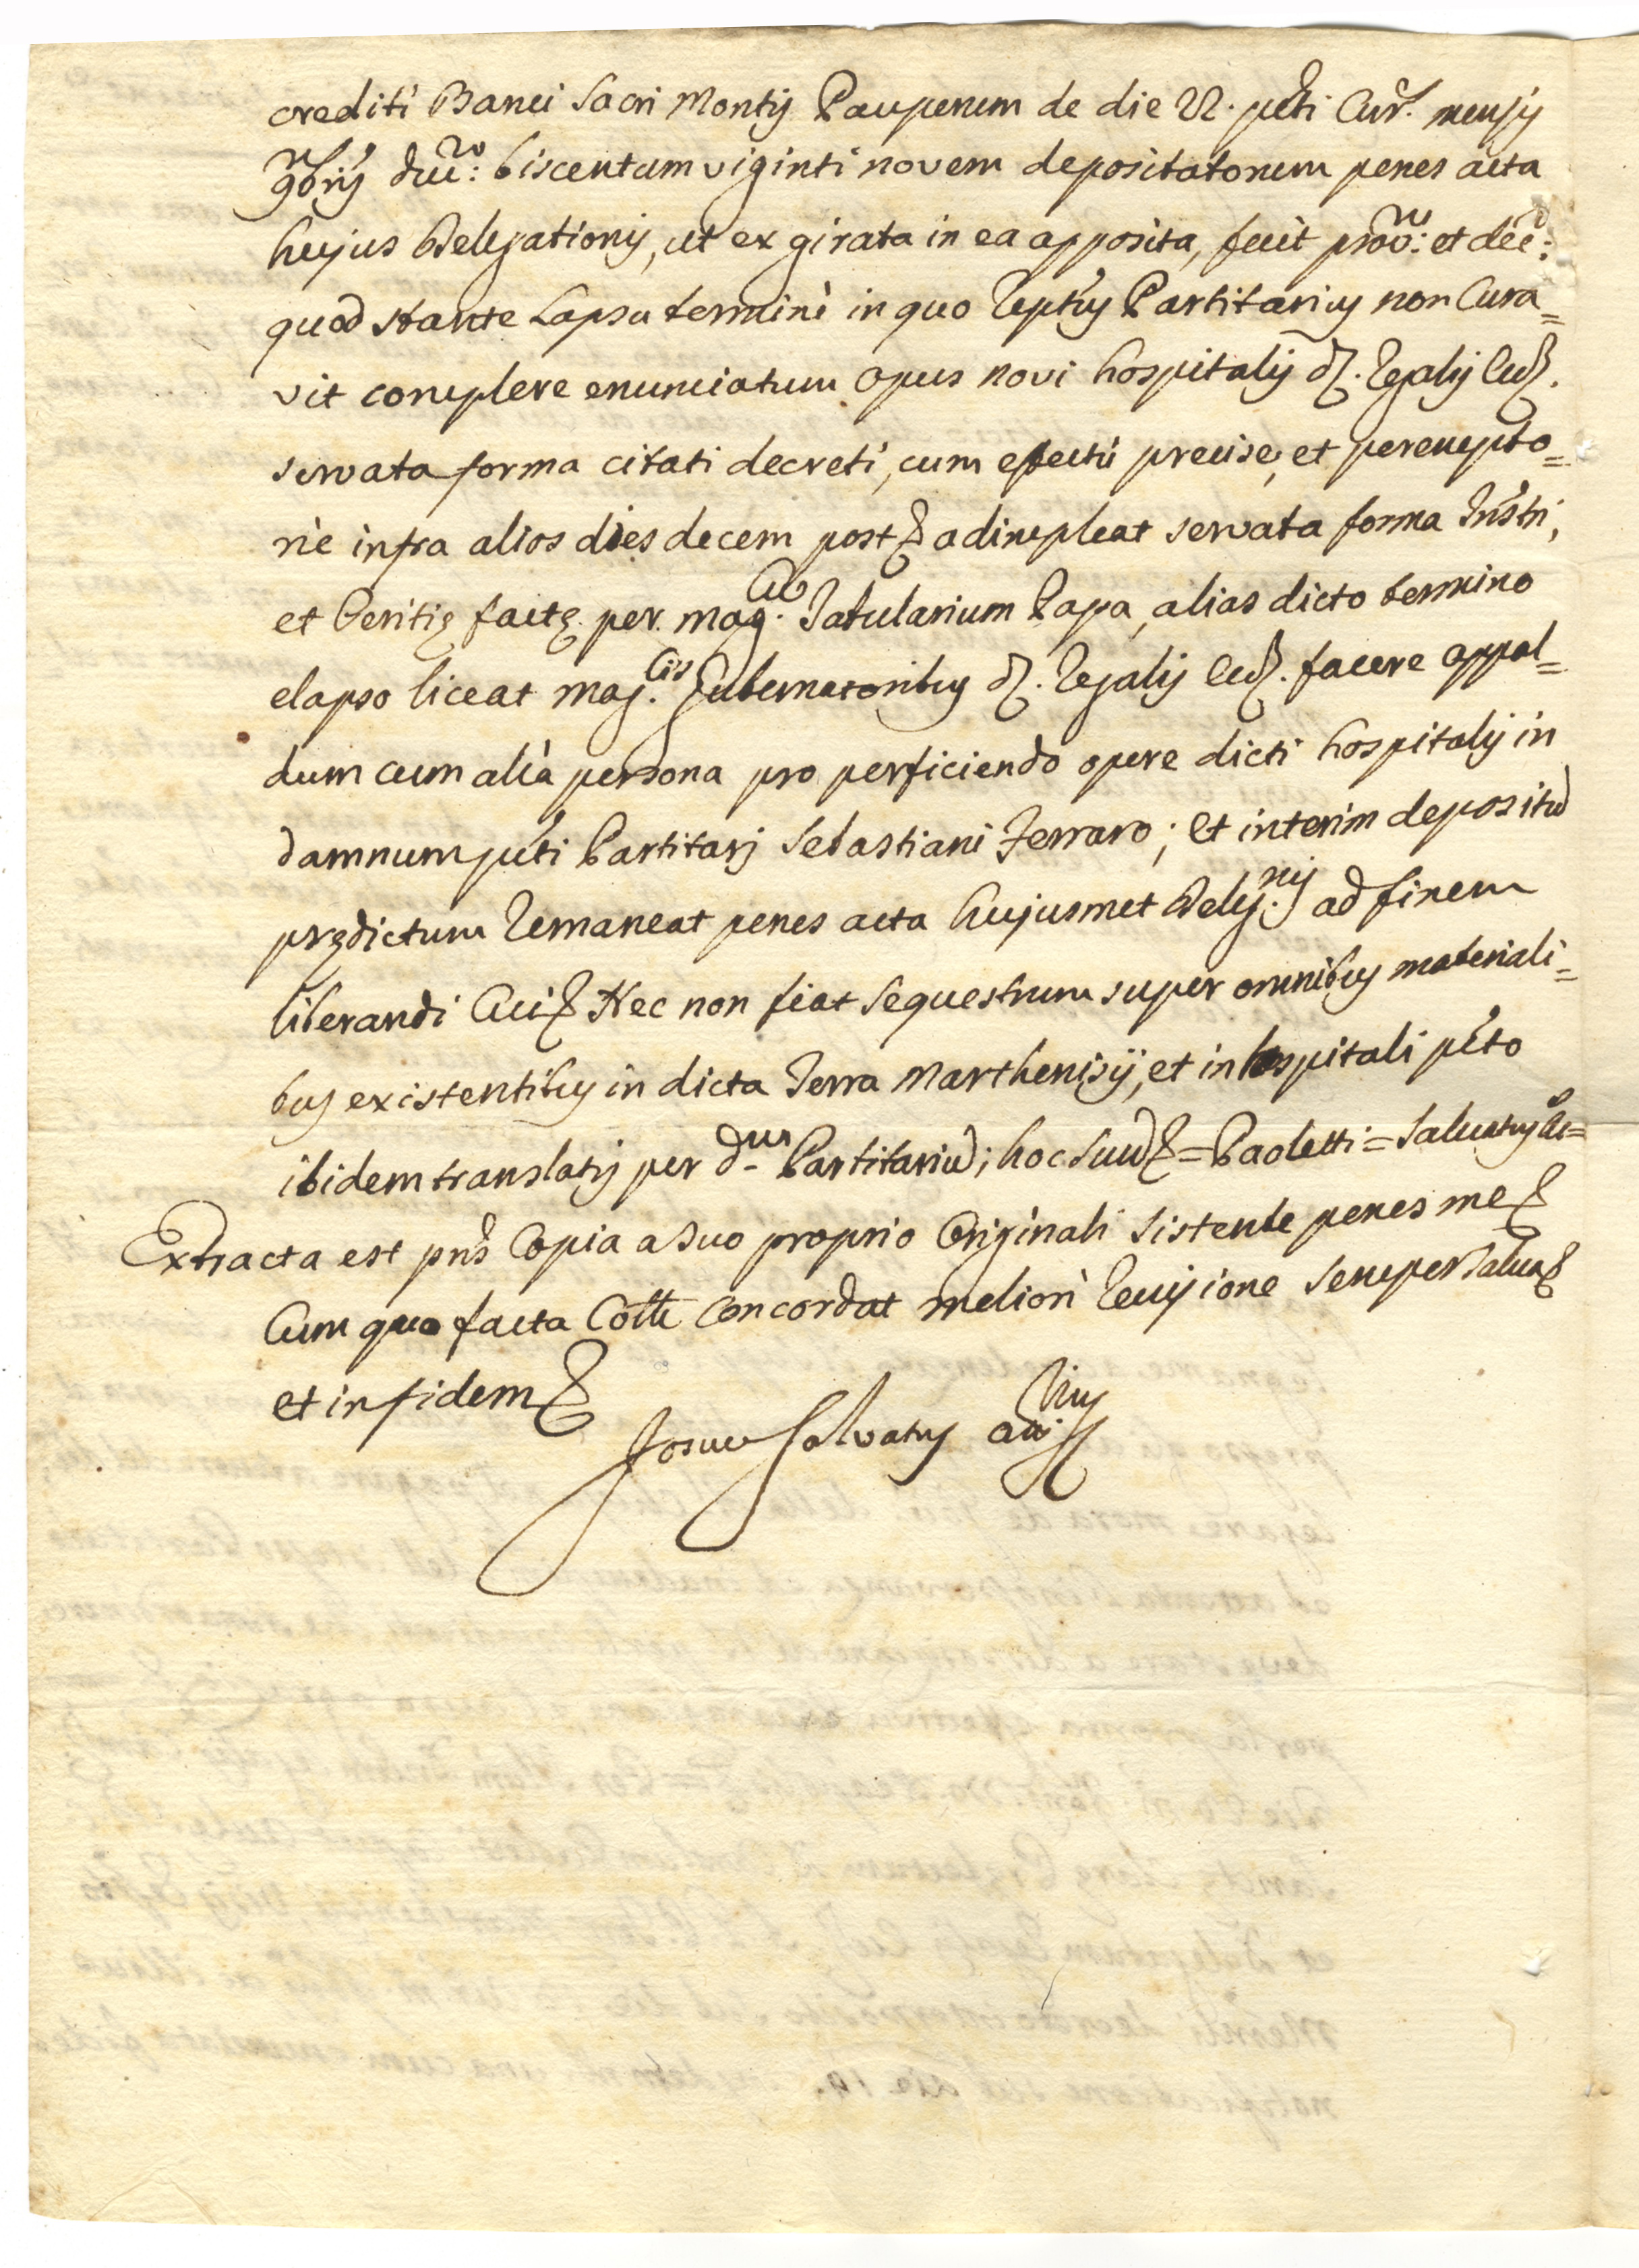 crediti Banci Sacri Montis Pauperum de die 22. pñti Curr. mensis
9bris duc: biscentum viginti novem depositatorum penes acta
hujus Delegationis, ut ex girata in ea apposita, fecit prov: et dec:
quod stante Lapsu termini in quo reptus Partitarius non Cura=
vit complere enunciatum opus novi hospitalis d. Regalis Eccl.
servata forma citati decreti, cum effectu precise, et perempto=
rie infra alios dies decem post& adimpleat servata forma Instri,
et Peritię factę per mag. Tabularium Papa, alias dicto termino
elapso liceat mag.cis Gubernatoribus d. Regalis Eccl. facere appal=
dum cum alia persona pro perficiendo opere dicti hospitalis in
damnum pñti Partitarj Sebastiani Ferraro; et interim depositũ
prędictum remaneat penes acta hujusmet Deleg.nis ad finem
liberandi Cui& Nec non fiat sequestrum super omnibus materiali=
bus existentibus in dicta Terra Marthenisij, et in hospitali pñto
ibidem translatis per dum Partitariũ; hoc suũ& = Paoletti = Salvatus
Extracta est pñs Copia a suo proprio Originali sistente penes me&
Cum quo facta Colle concordat meliori revisione semper salva&
et in fidem&
Josue Salvatus